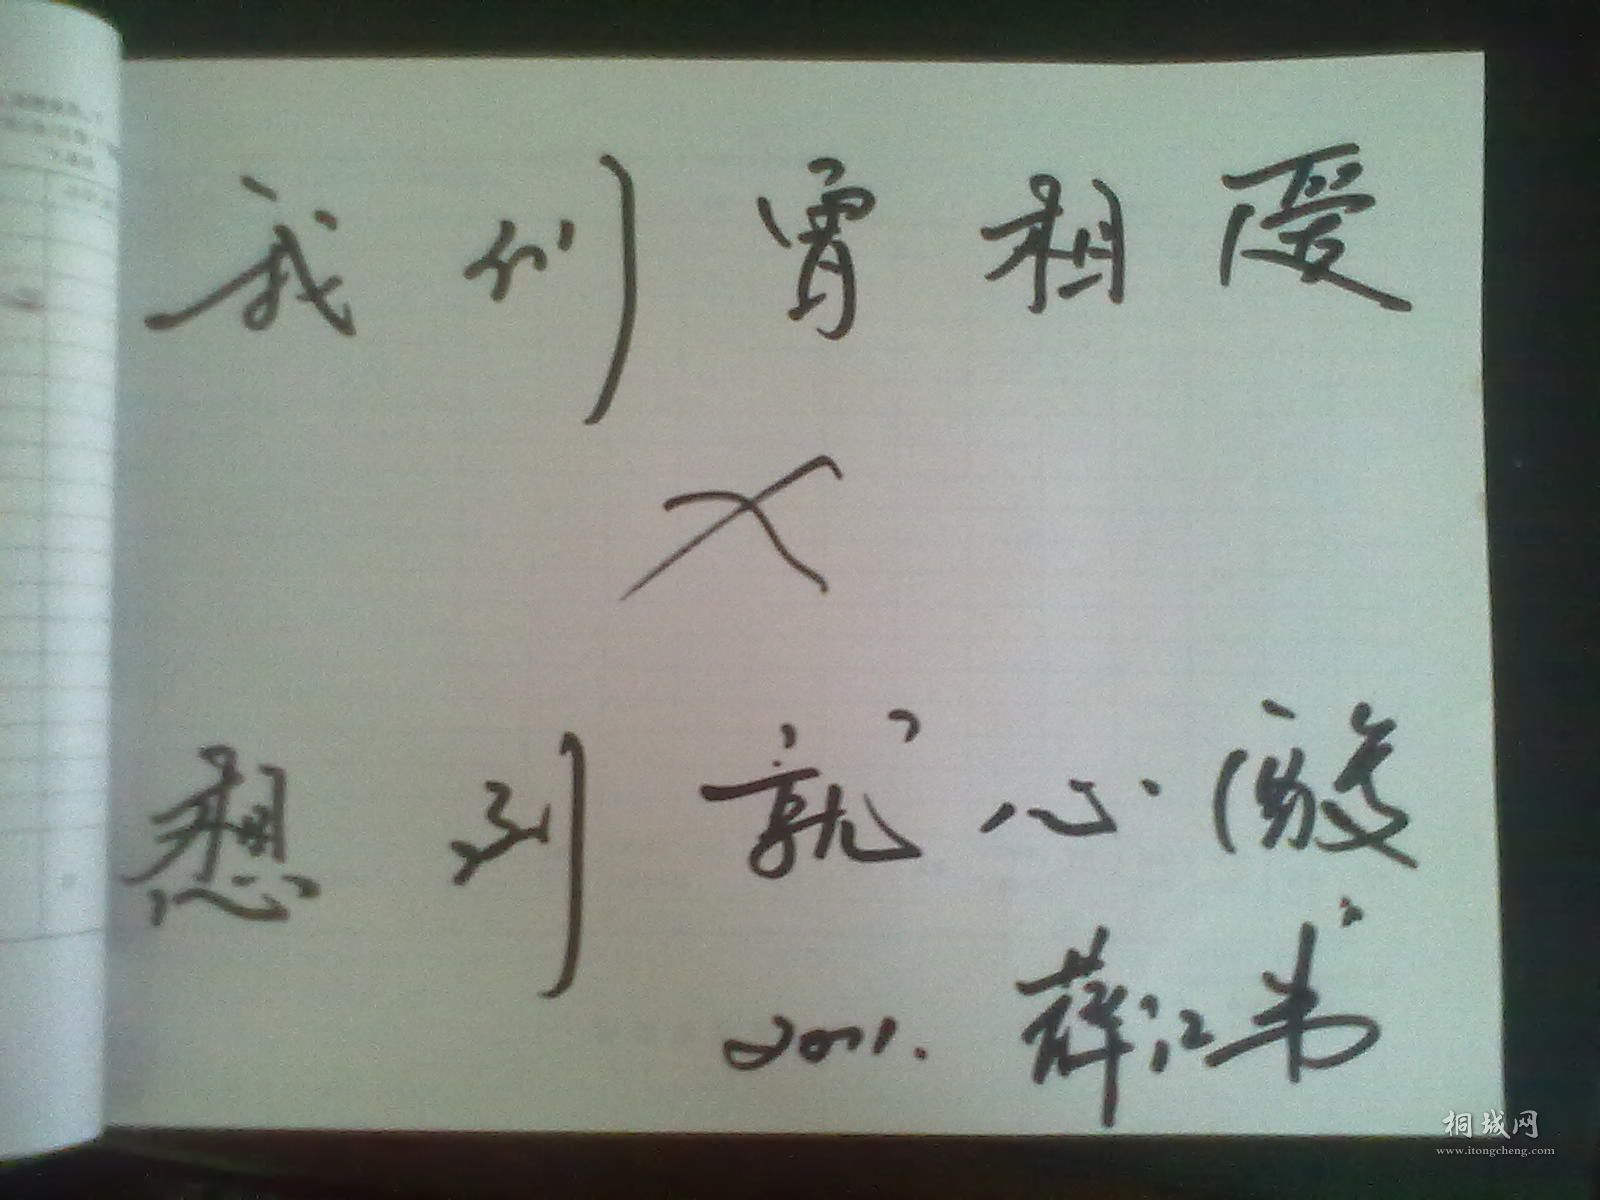 我们曾相爱
想到就心酸
2011. 薛江书
桐城网
www.itongcheng.com